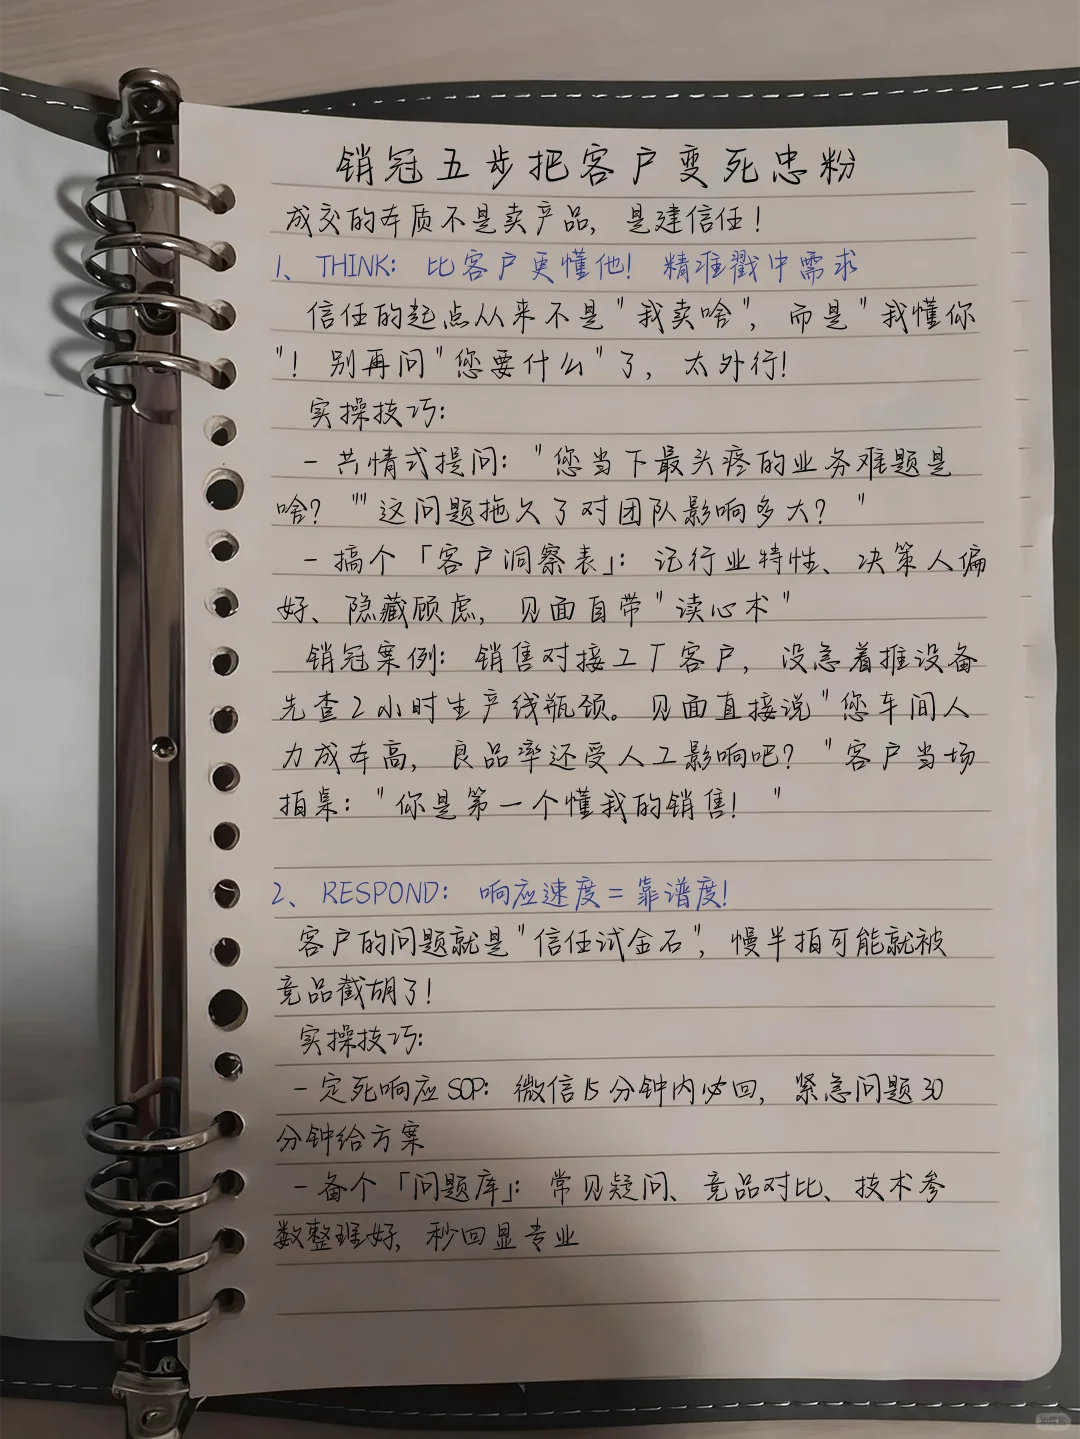 销冠五步把客户变死忠粉
成交的本质不是卖产品，是建信任！
1、THINK：比客户更懂他！精准戳中需求
信任的起点从来不是"我卖啥"，而是"我懂你
"！别再问"您要什么"了，太外行！
实操技巧：
- 共情式提问："您当下最头疼的业务难题是
啥？""这问题拖久了对团队影响多大？"
- 搞个「客户洞察表」：记行业特性、决策人偏
好、隐藏顾虑，见面自带"读心术"
销冠案例：销售对接工厂客户，没急着推设备
先查2小时生产线瓶颈。见面直接说"您车间人
力成本高，良品率还受人工影响吧？"客户当场
拍桌："你是第一个懂我的销售！"
2、RESPOND：响应速度=靠谱度！
客户的问题就是"信任试金石"，慢半拍可能就被
竞品截胡了！
实操技巧：
- 定死响应SOP：微信15分钟内必回，紧急问题30
分钟给方案
- 备个「问题库」：常见疑问、竞品对比、技术参
数整理好，秒回显专业